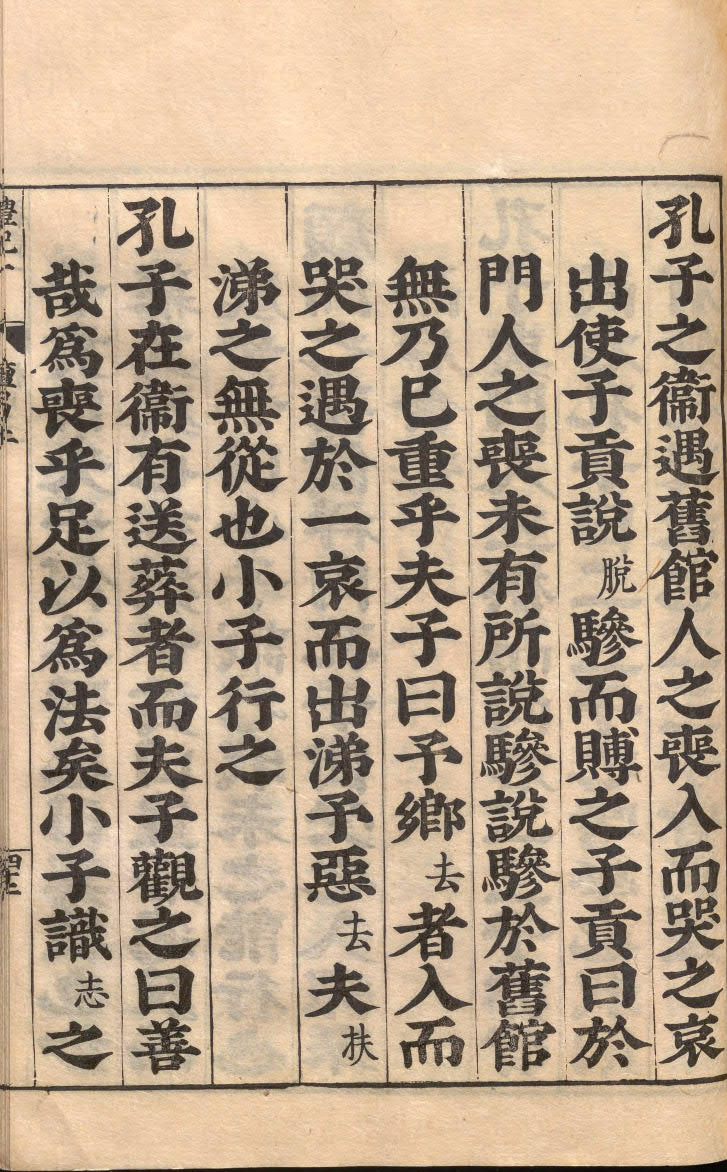 孔子之衞遇舊館人之喪入而哭之哀
出使子貢說脫驂而賻之子貢曰於
門人之喪未有所說驂說驂於舊館
無乃已重乎夫子曰予鄉去者入而
哭之遇於一哀而出涕予惡去夫扶
涕之無從也小子行之
孔子在衞有送葬者而夫子觀之曰善
哉爲喪乎足以爲法矣小子識志之